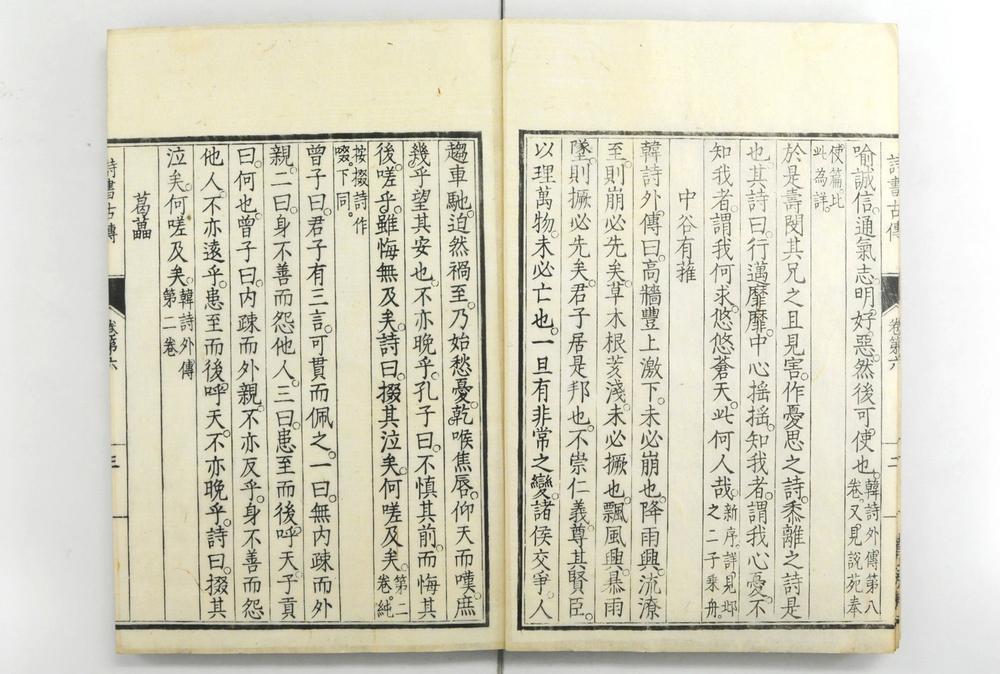 詩書古傳 卷第六 二
喻誠信。通氣志。明好惡。然後可使也。韓詩外傳第八
卷。又見說苑奉
使篇。比
此為詳。
於是壽閔其兄之且見害。作憂思之詩。黍離之詩是
也。其詩曰。行邁靡靡。中心搖搖。知我者。謂我心憂。不
知我者。謂我何求。悠悠蒼天。此何人哉。新序。詳見邶
之二子乘舟。
中谷有蓷
韓詩外傳曰。高牆豐上激下。未必崩也。降雨興。流潦
至。則崩必先矣。草木根荄淺。未必撅也。飄風興。暴雨
墜。則撅必先矣。君子居是邦也。不崇仁義。尊其賢臣。
以理萬物。未必亡也。一旦有非常之變。諸侯交爭。人
趨車馳。迫然禍至。乃始愁憂。乾喉焦唇。仰天而嘆。庶
幾乎望其安也。不亦晚乎。孔子曰。不慎其前。而悔其
後。嗟乎。雖悔無及矣。詩曰。掇其泣矣。何嗟及矣。第二
卷。純
按掇詩作
啜。下同。
曾子曰。君子有三言。可貫而佩之。一曰。無內疎而外
親。二曰。身不善而怨他人。三曰。患至而後呼天。子貢
曰。何也。曾子曰。內疎而外親。不亦反乎。身不善而怨
他人。不亦遠乎。患至而後呼天。不亦晚乎。詩曰。掇其
泣矣。何嗟及矣。韓詩外傳
第二卷
葛藟
詩書古傳 卷第六 三